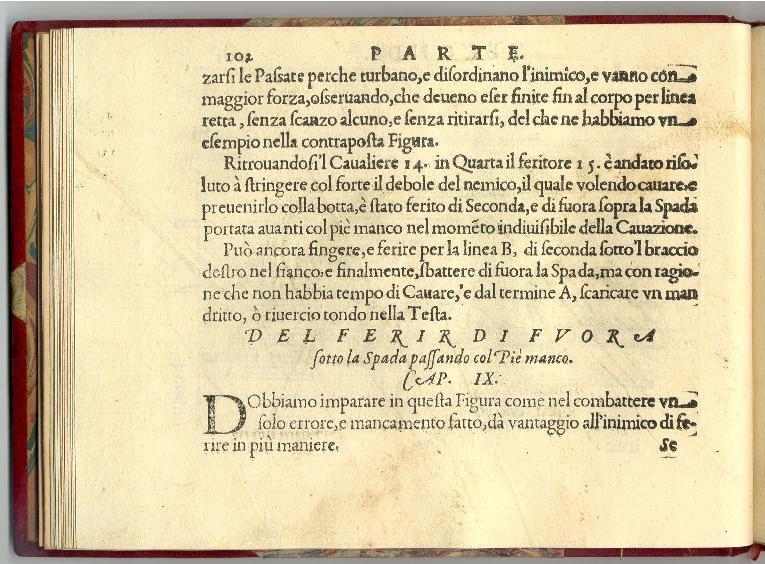 102 PARTE.
zarsi le Paſſate perche turbano, e diſordinano l'inimico, e vanno con
maggior forza, oſſeruando, che deueno eſer finite fin al corpo per linea
retta, ſenza ſcanzo alcuno, e ſenza ritirarſi, del che ne habbiamo vn
eſempio nella contrapoſta Figura.
Ritrouandoſi'l Caualiere 14. in Quarta il feritore 15. è andato riſo-
luto à ſtringere col forte il debole del nemico, il quale volendo cauare, e
preuenirlo colla botta, è ſtato ferito di Seconda, e di fuora ſopra la Spada
portata auanti col piè manco nel momẽto indiuiſibile della Cauazione.
Può ancora fingere, e ferire per la linea B, di ſeconda ſotto'l braccio
deſtro nel fianco: e finalmente, ſbattere di fuora la Spada, ma con ragio-
ne che non habbia tempo di Cauare, e dal termine A, ſcaricare vn man
dritto, ò riuercio tondo nella Teſta.
DEL FERIR DI FVORA
ſotto la Spada paſſando col Piè manco.
CAP. IX.
DObbiamo imparare in queſta Figura come nel combattere vn
ſolo errore, e mancamento fatto, dà vantaggio all'inimico di fe-
rire in più maniere.
Se